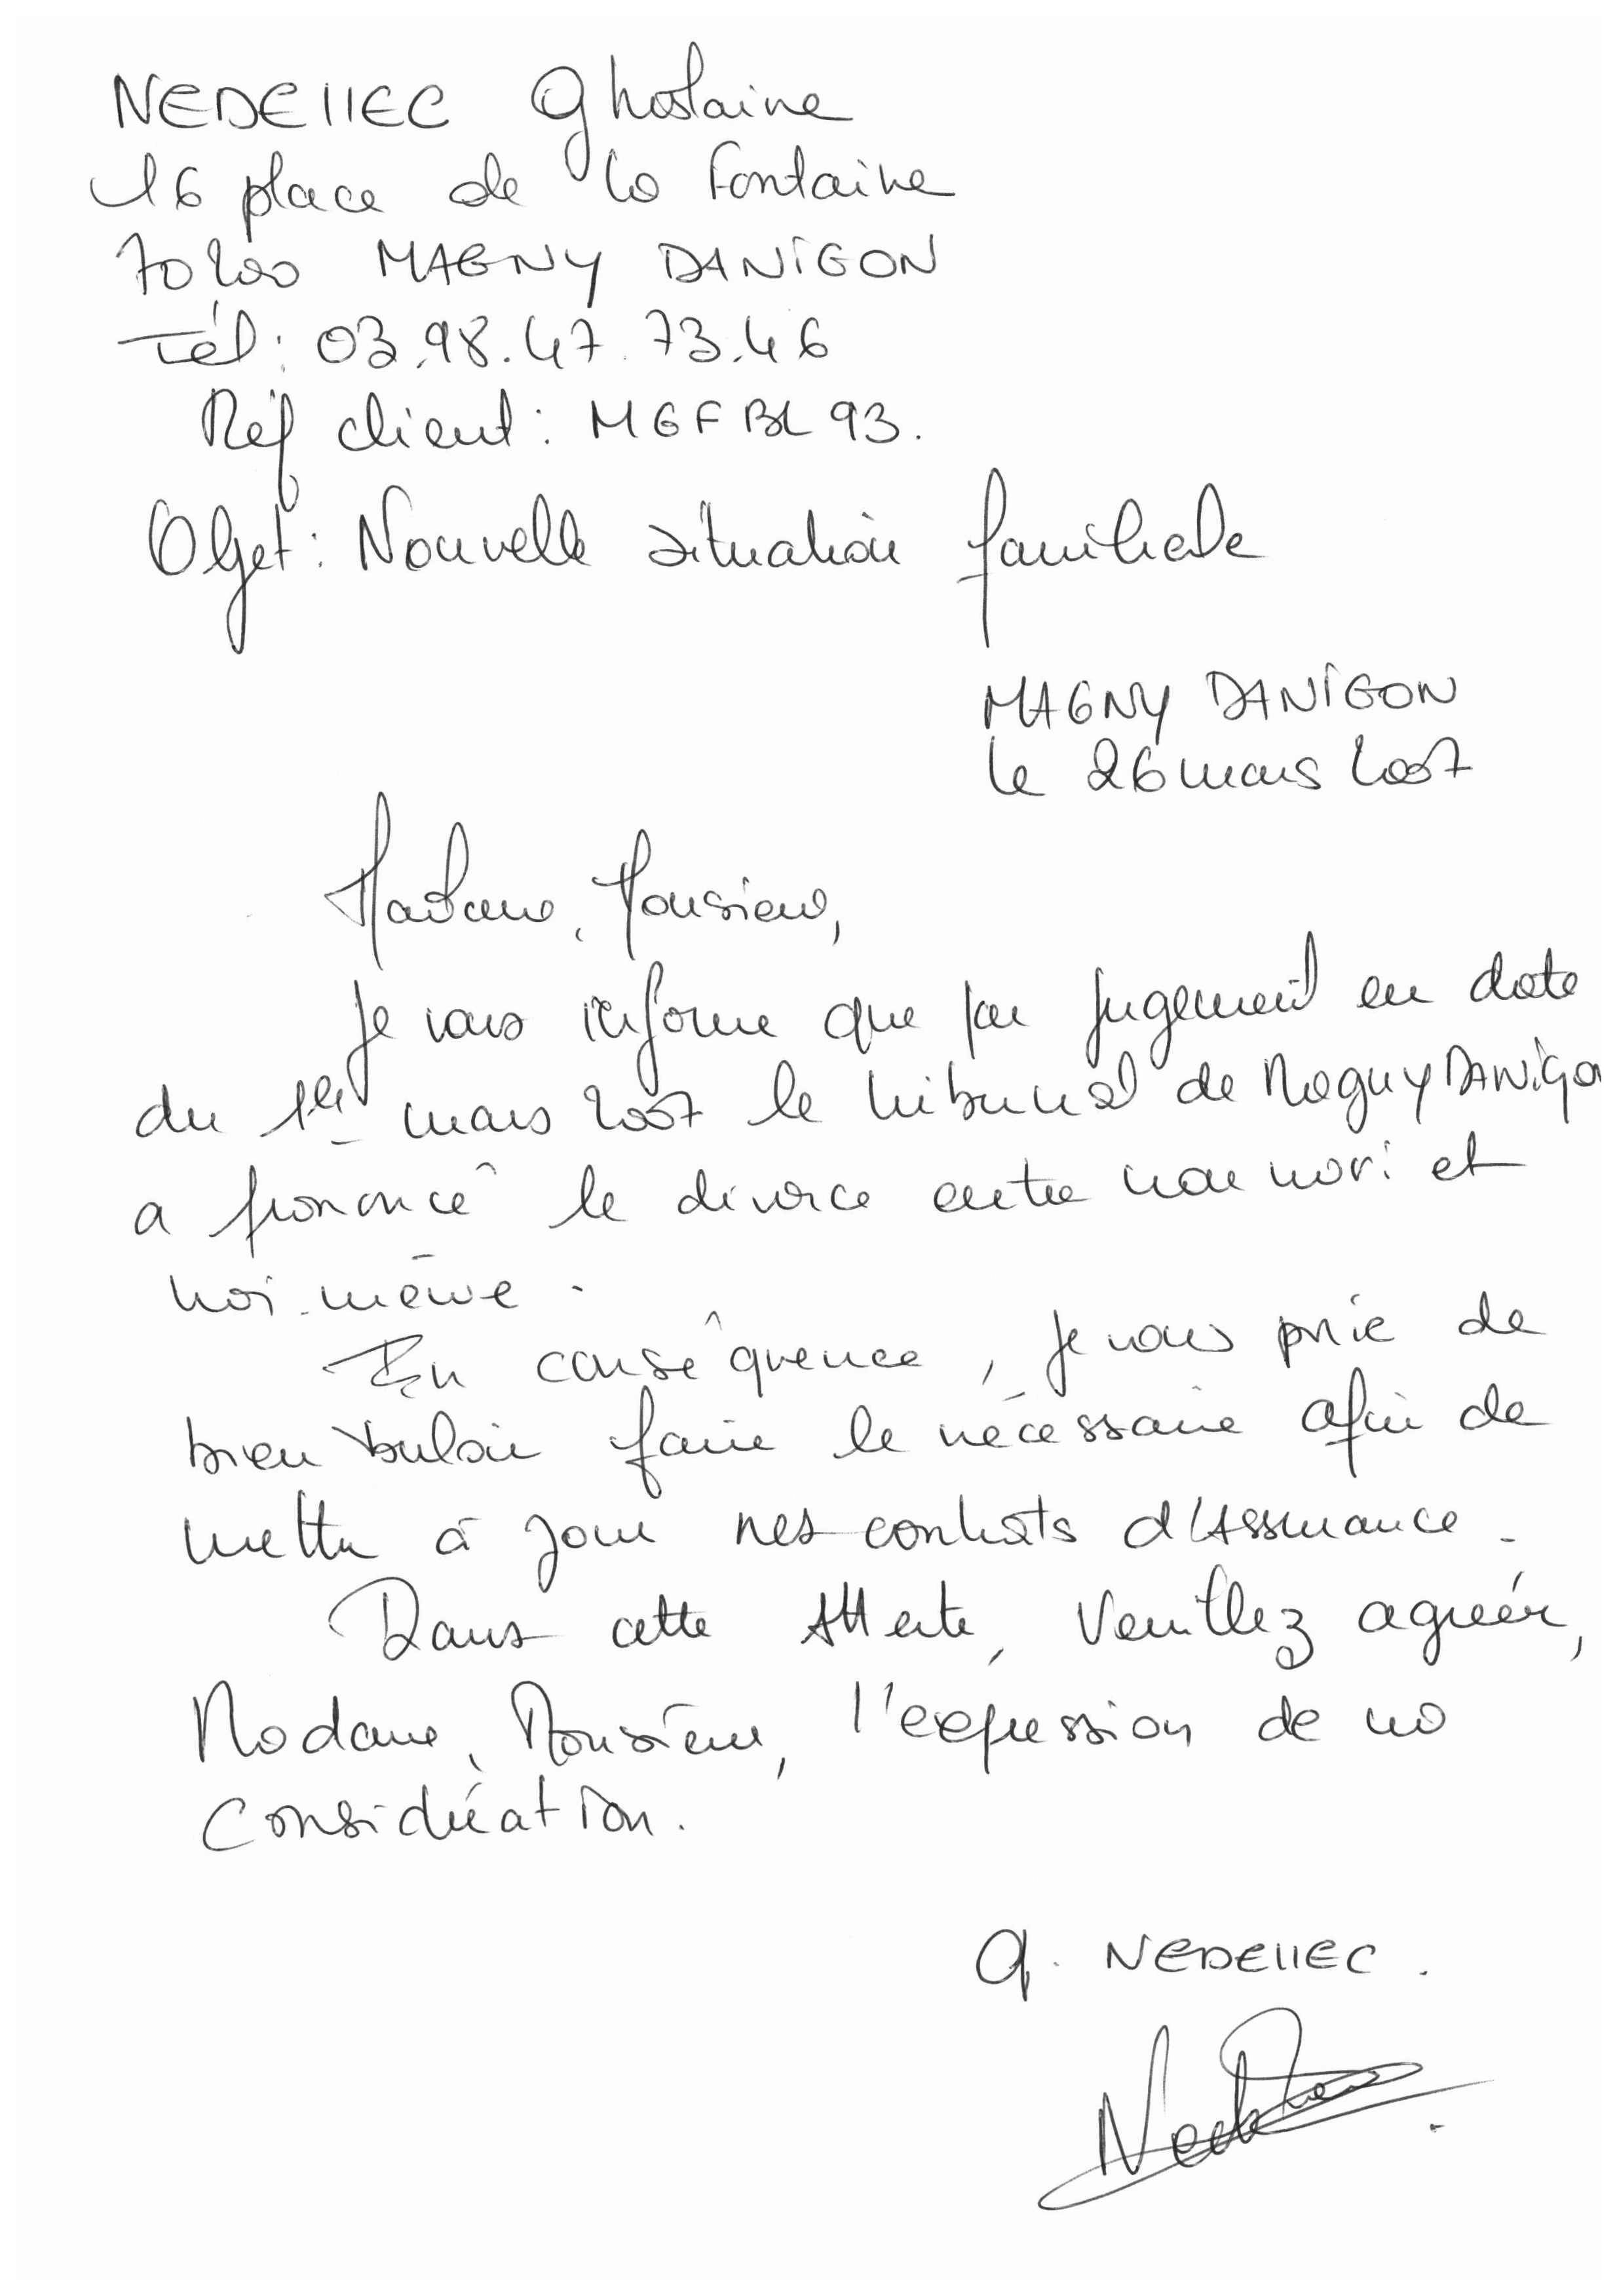 NEDELLEC Ghislaine
16 place de la Fontaine
70200 MAGNY DANIGON
Tél : 03.98.47.73.46
Réf client : MGFBL93.
Objet : Nouvelle situation familiale
MAGNY DANIGON
le 26 mars 2007
Madame, Monsieur,
Je vous informe que par jugement en date
du 1er mars 2007 le tribunal de Magny DANIGO
a prononcé le divorce entre mon mari et
moi-même.
En conséquence, je vous prie de
bien vouloir faire le nécessaire afin de
mettre à jour mes contrats d'Assurance.
Dans cette Attente, Veuillez agréer,
Madame, Monsieur, l'expression de ma
Considération.
G. NEDELLEC.